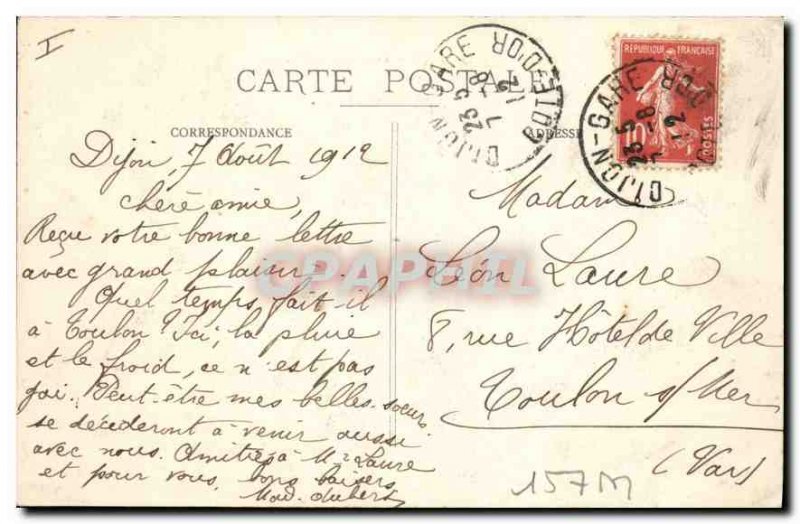 I
CARTE POSTALE
CORRESPONDANCE
ADRESSE
Dijon, 7 Août 1912
chère amie,
Reçu votre bonne lettre
avec grand plaisir.
Quel temps fait-il
à Toulon? Ici, la pluie
et le froid, ce n'est pas
gai. Peut-être mes belles-sœurs
se décideront à venir aussi
avec nous. Amitiés à Mr Laure
et pour vous, bons baisers
Mad. Aubert
Madame
Léon Laure
8, rue Hôtel de Ville
Toulon s/Mer
(Var)
157M
DIJON-GARE
COTE-D'OR
23 5
7 -8
12
REPUBLIQUE FRANÇAISE
10
POSTES
DIJON-GARE
COTE-D'OR
23 5
7 -8
12
CPAPHIL